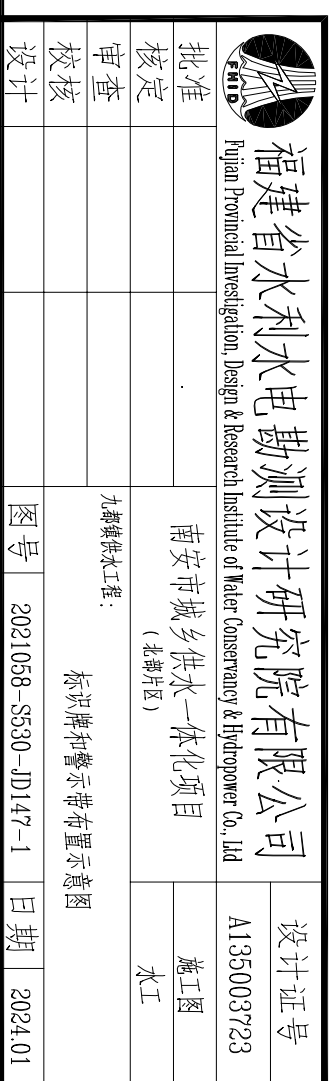 FHID
福建省水利水电勘测设计研究院有限公司
Fujian Provincial Investigation, Design & Research Institute of Water Conservancy & Hydropower Co., Ltd
设计证号
A135003723
批准
核定
审查
校核
设计
南安市城乡供水一体化项目
(北部片区)
施工图
水工
九都镇供水工程：
标识牌和警示带布置示意图
图号
2021058-S530-JD147-1
日期
2024.01